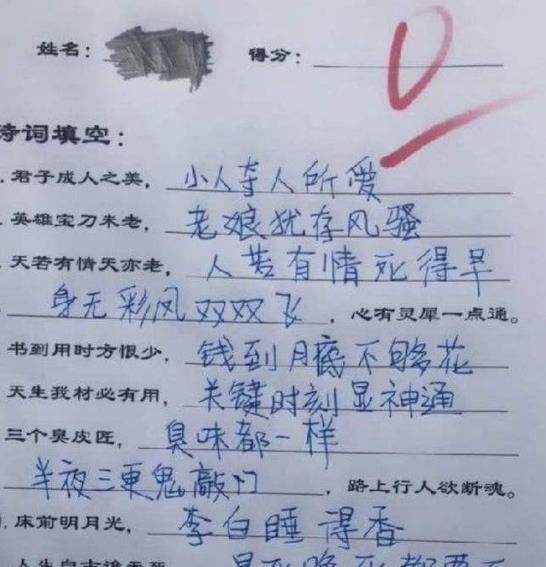 姓名： 得分： 0
诗词填空：
. 君子成人之美， 小人夺人所爱
. 英雄宝刀未老， 老娘犹存风骚
. 天若有情天亦老， 人若有情死得早
身无彩凤双双飞 ， 心有灵犀一点通。
书到用时方恨少， 钱到月底不够花
天生我材必有用， 关键时刻显神通
三个臭皮匠， 臭味都一样
半夜三更鬼敲门 ， 路上行人欲断魂。
. 床前明月光， 李白睡得香
人生自古谁无死